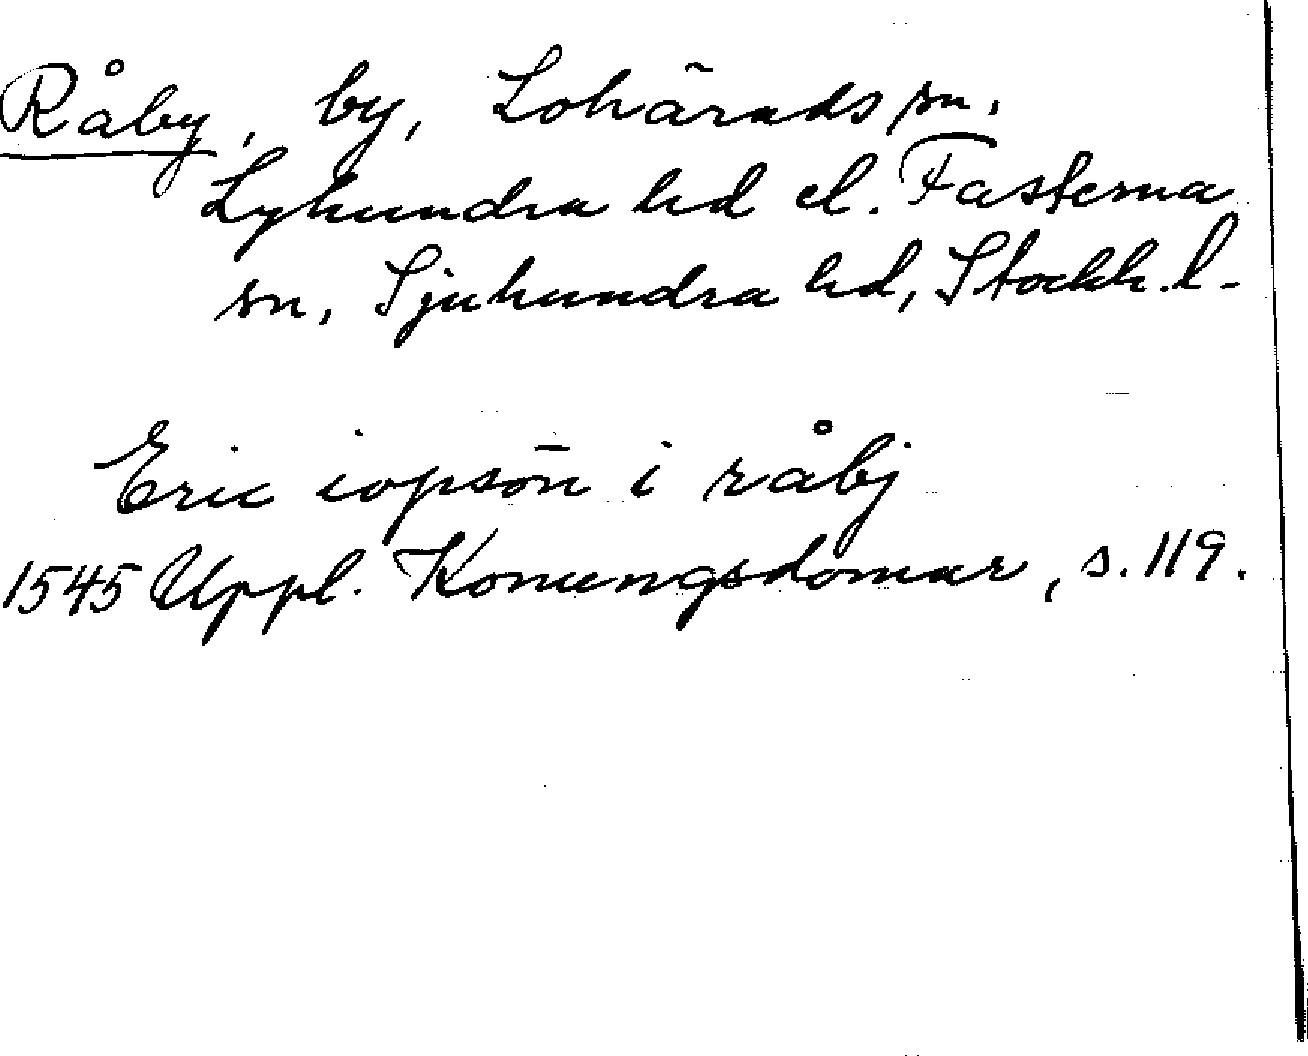 Råby, by, Lohärads sn.
Lyhundra hd el. Fasterna
sn, Sjuhundra hd, Stockh. l-
Eric iopsön i råbj
1545 Uppl. Konungsdomar, s. 119.